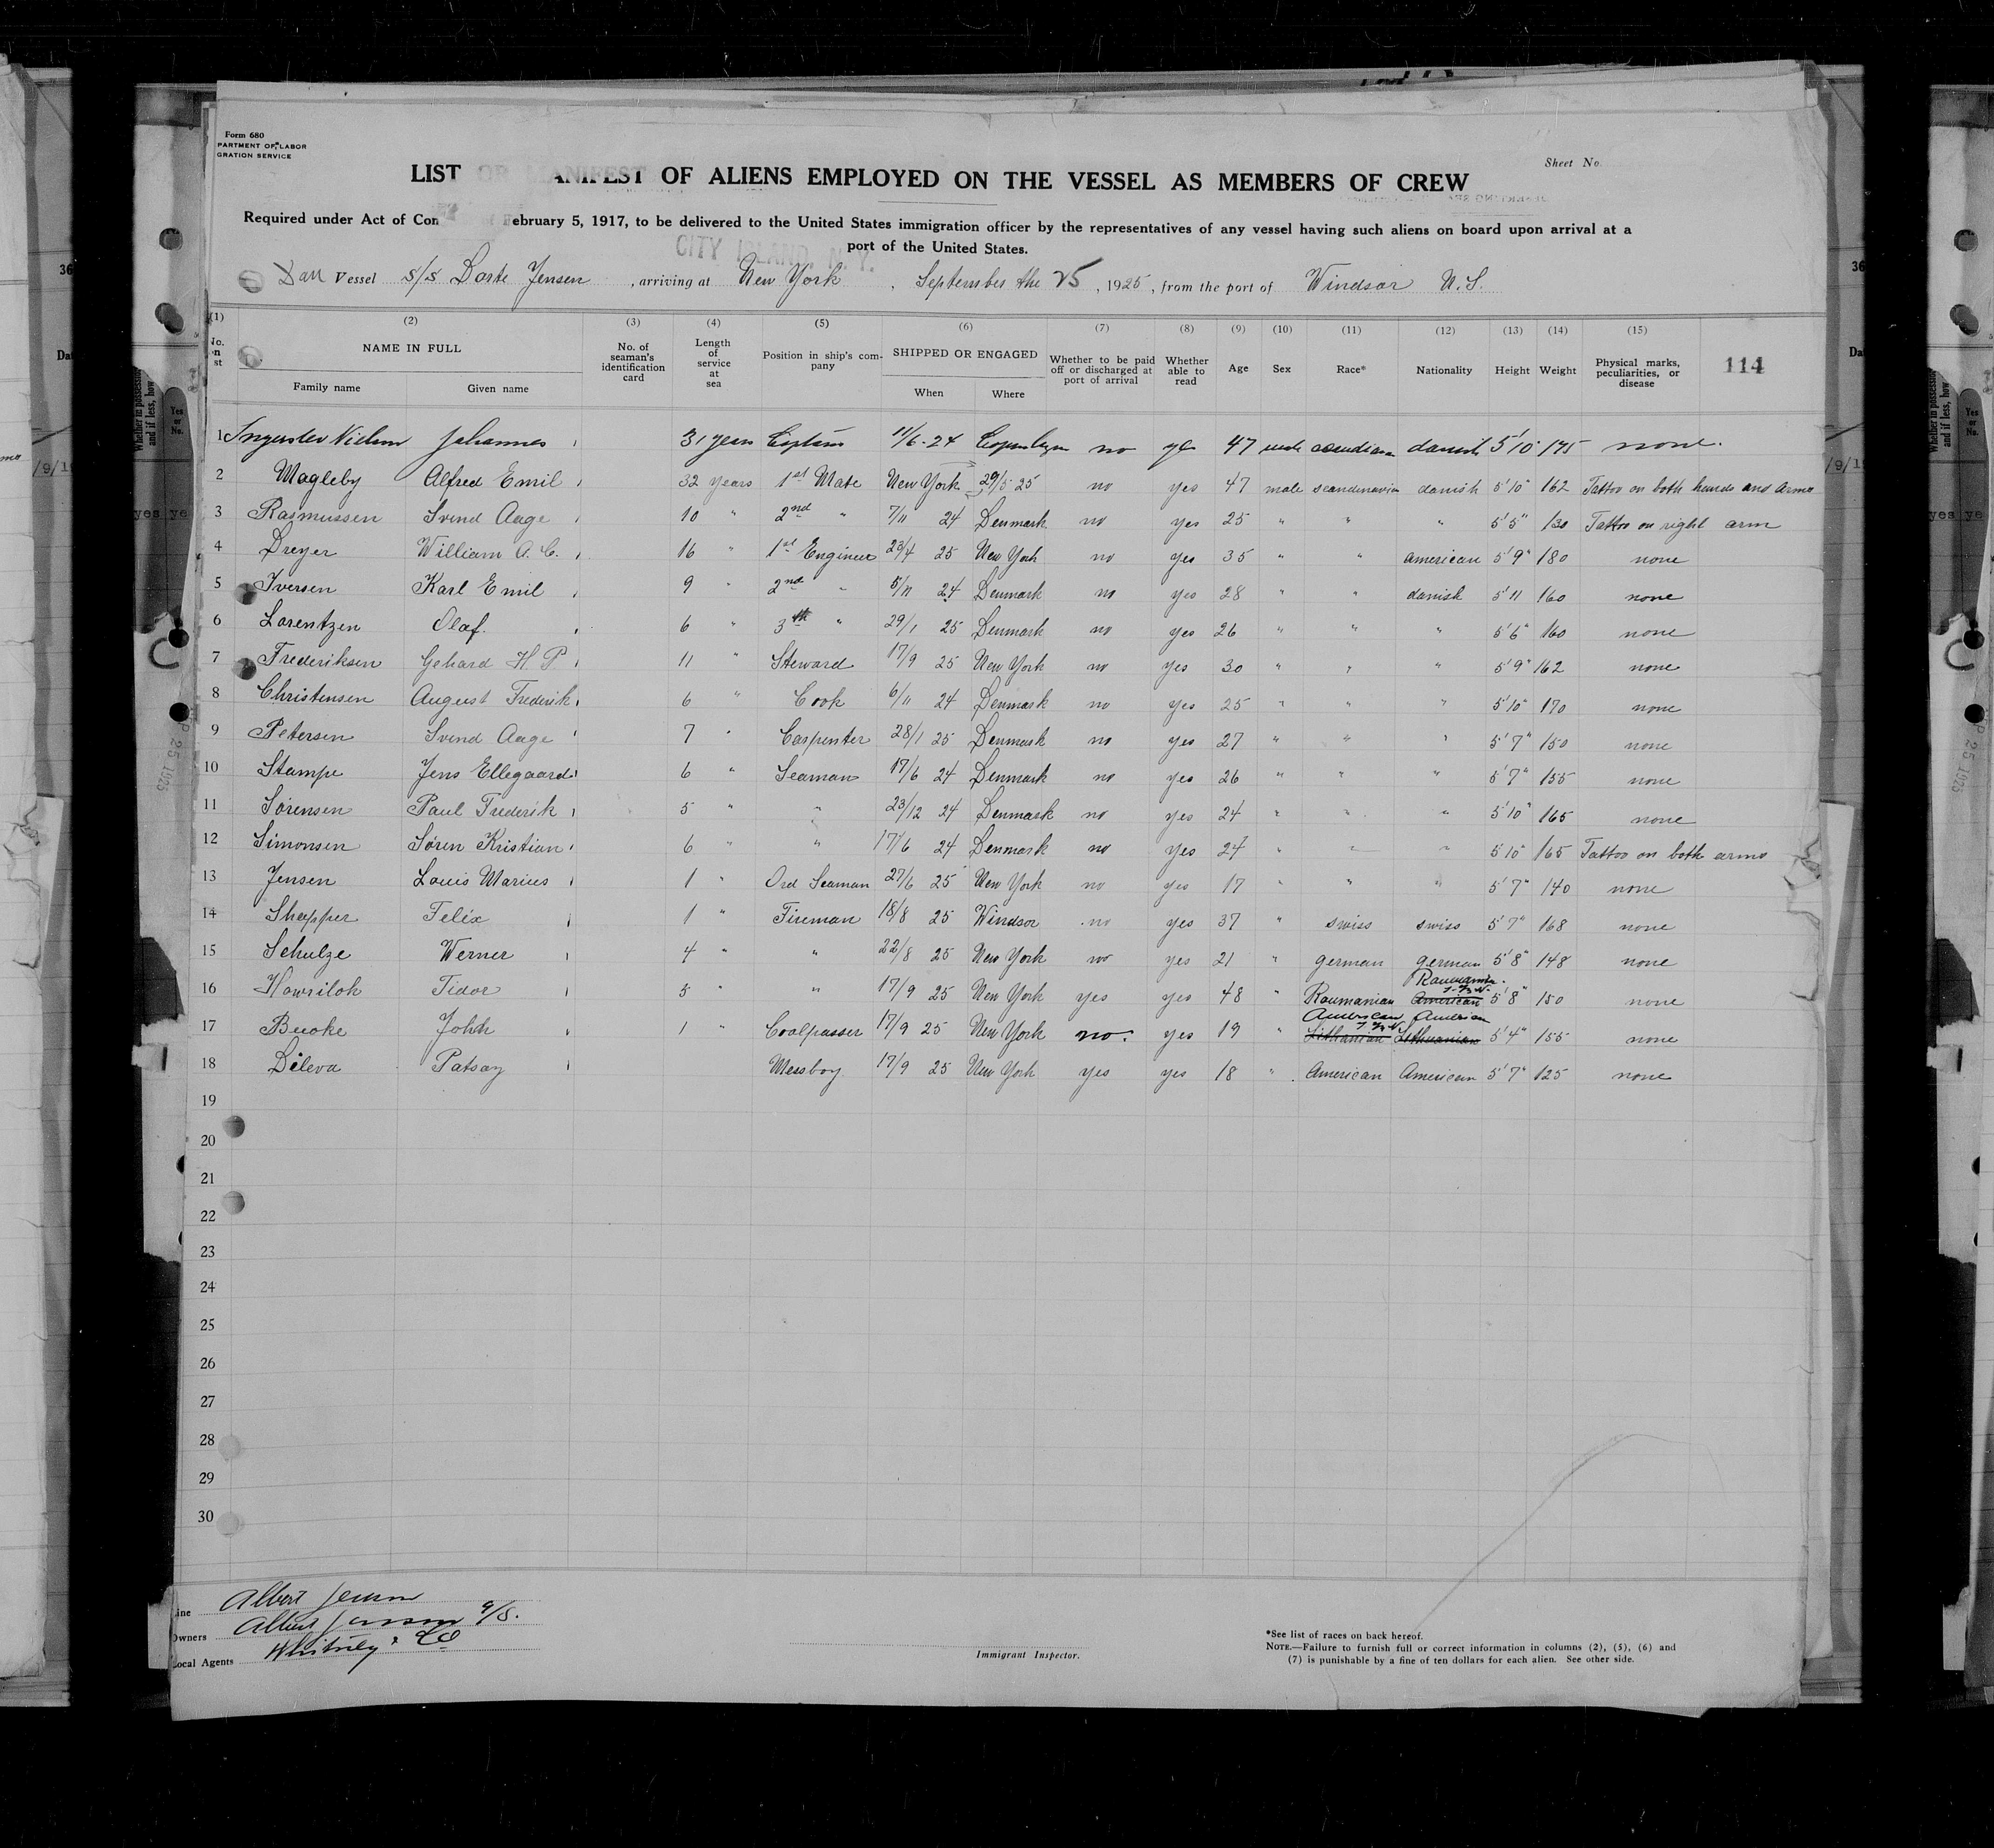 Form 680
PARTMENT OF LABOR
GRATION SERVICE
Sheet No.
LIST OR MANIFEST OF ALIENS EMPLOYED ON THE VESSEL AS MEMBERS OF CREW
Required under Act of Con February 5, 1917, to be delivered to the United States immigration officer by the representatives of any vessel having such aliens on board upon arrival at a
port of the United States.
CITY ISLAND, N. Y.
Dan Vessel s/s Dorte Jensen, arriving at New York, September the 25, 1925, from the port of Windsor N.S.
(1) (2) (3) (4) (5) (6) (7) (8) (9) (10) (11) (12) (13) (14) (15)
No. on st NAME IN FULL Family name Given name No. of seaman's identification card Length of service at sea Position in ship's company SHIPPED OR ENGAGED When Where Whether to be paid off or discharged at port of arrival Whether able to read Age Sex Race* Nationality Height Weight Physical marks, peculiarities, or disease 114
1 Johannes 31 years Captain 11/6-24 no yes 47 male danish 5'10" 175 none.
2 Magleby Alfred Emil 32 years 1st Mate New York 29/5 25 no yes 47 male scandinavian danish 5'10" 162 Tattoo on both hands and arms
3 Rasmussen Svend Aage 10 " 2nd " 7/11 24 Denmark no yes 25 " " " 5'5" 130 Tattoo on right arm
4 Dreyer William A. C. 16 " 1st Engineer 23/4 25 New York no yes 35 " " american 5'9" 180 none
5 Iversen Karl Emil 9 " 2nd " 5/11 24 Denmark no yes 28 " " danish 5'11 160 none
6 Lorentzen Olaf. 6 " 3th " 29/1 25 Denmark no yes 26 " " " 5'6" 160 none
7 Frederiksen Gehard H P 11 " Steward 17/9 25 New York no yes 30 " " " 5'9" 162 none
8 Christensen August Frederik 6 " Cook 6/11 24 Denmark no yes 25 " " " 5'10" 170 none
9 Petersen Svend Aage 7 " Carpenter 28/1 25 Denmark no yes 27 " " " 5'7" 150 none
10 Stampe Jens Ellegaard 6 " Seaman 17/6 24 Denmark no yes 26 " " " 5'7" 155 none
11 Sørensen Paul Frederik 5 " " 23/12 24 Denmark no yes 24 " " " 5'10" 165 none
12 Simonsen Søren Kristian 6 " " 17/6 24 Denmark no yes 24 " " " 5'10" 165 Tattoo on both arms
13 Jensen Louis Marius 1 " Ord Seaman 27/6 25 New York no yes 17 " " " 5'7" 140 none
14 Shepper Felix 1 " Fireman 18/8 25 Windsor no yes 37 " swiss swiss 5'7" 168 none
15 Schulze Werner 4 " " 22/8 25 New York no yes 21 " german german 5'8" 148 none
16 Hawrilok Tidor 5 " " 17/9 25 New York yes yes 48 " Roumanian American Roumanian 5'8" 150 none
17 Bucke John 1 " Coalpasser 17/9 25 New York no. yes 19 " Lithanian American Lithuanian American 5'4" 155 none
18 Dileva Patsay Messboy 17/9 25 New York yes yes 18 " American American 5'7" 125 none
19
20
21
22
23
24
25
26
27
28
29
30
Line Albert Jensen
Owners Albert Jensen
Local Agents Whitney & Co
Immigrant Inspector.
*See list of races on back hereof.
NOTE.—Failure to furnish full or correct information in columns (2), (5), (6) and
(7) is punishable by a fine of ten dollars for each alien. See other side.